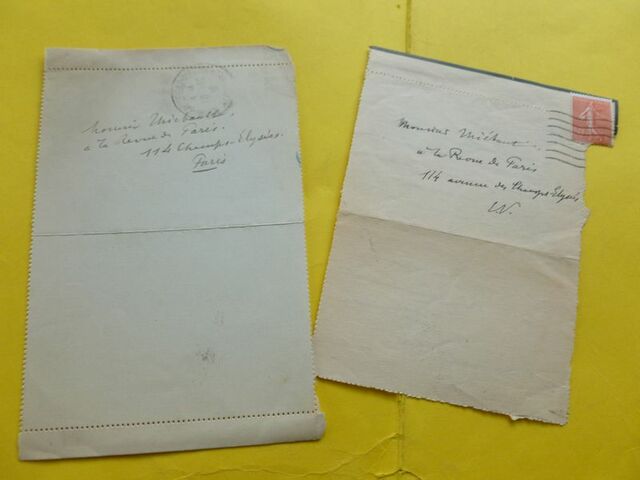 Monsieur Thiébault,
à la Revue de Paris.
114 Champs-Elysées.
Paris
Monsieur Thiébaut
à la Revue de Paris
114 avenue des Champs-Elysées